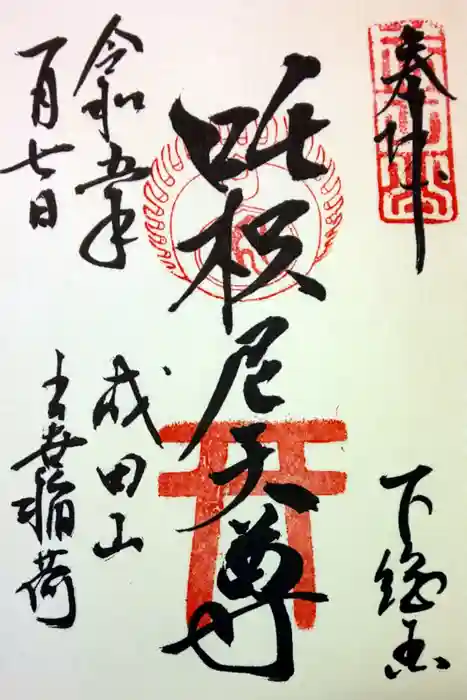 奉拝
下総国
吒枳尼天尊
成田山
出世稲荷
令和五年
一月七日